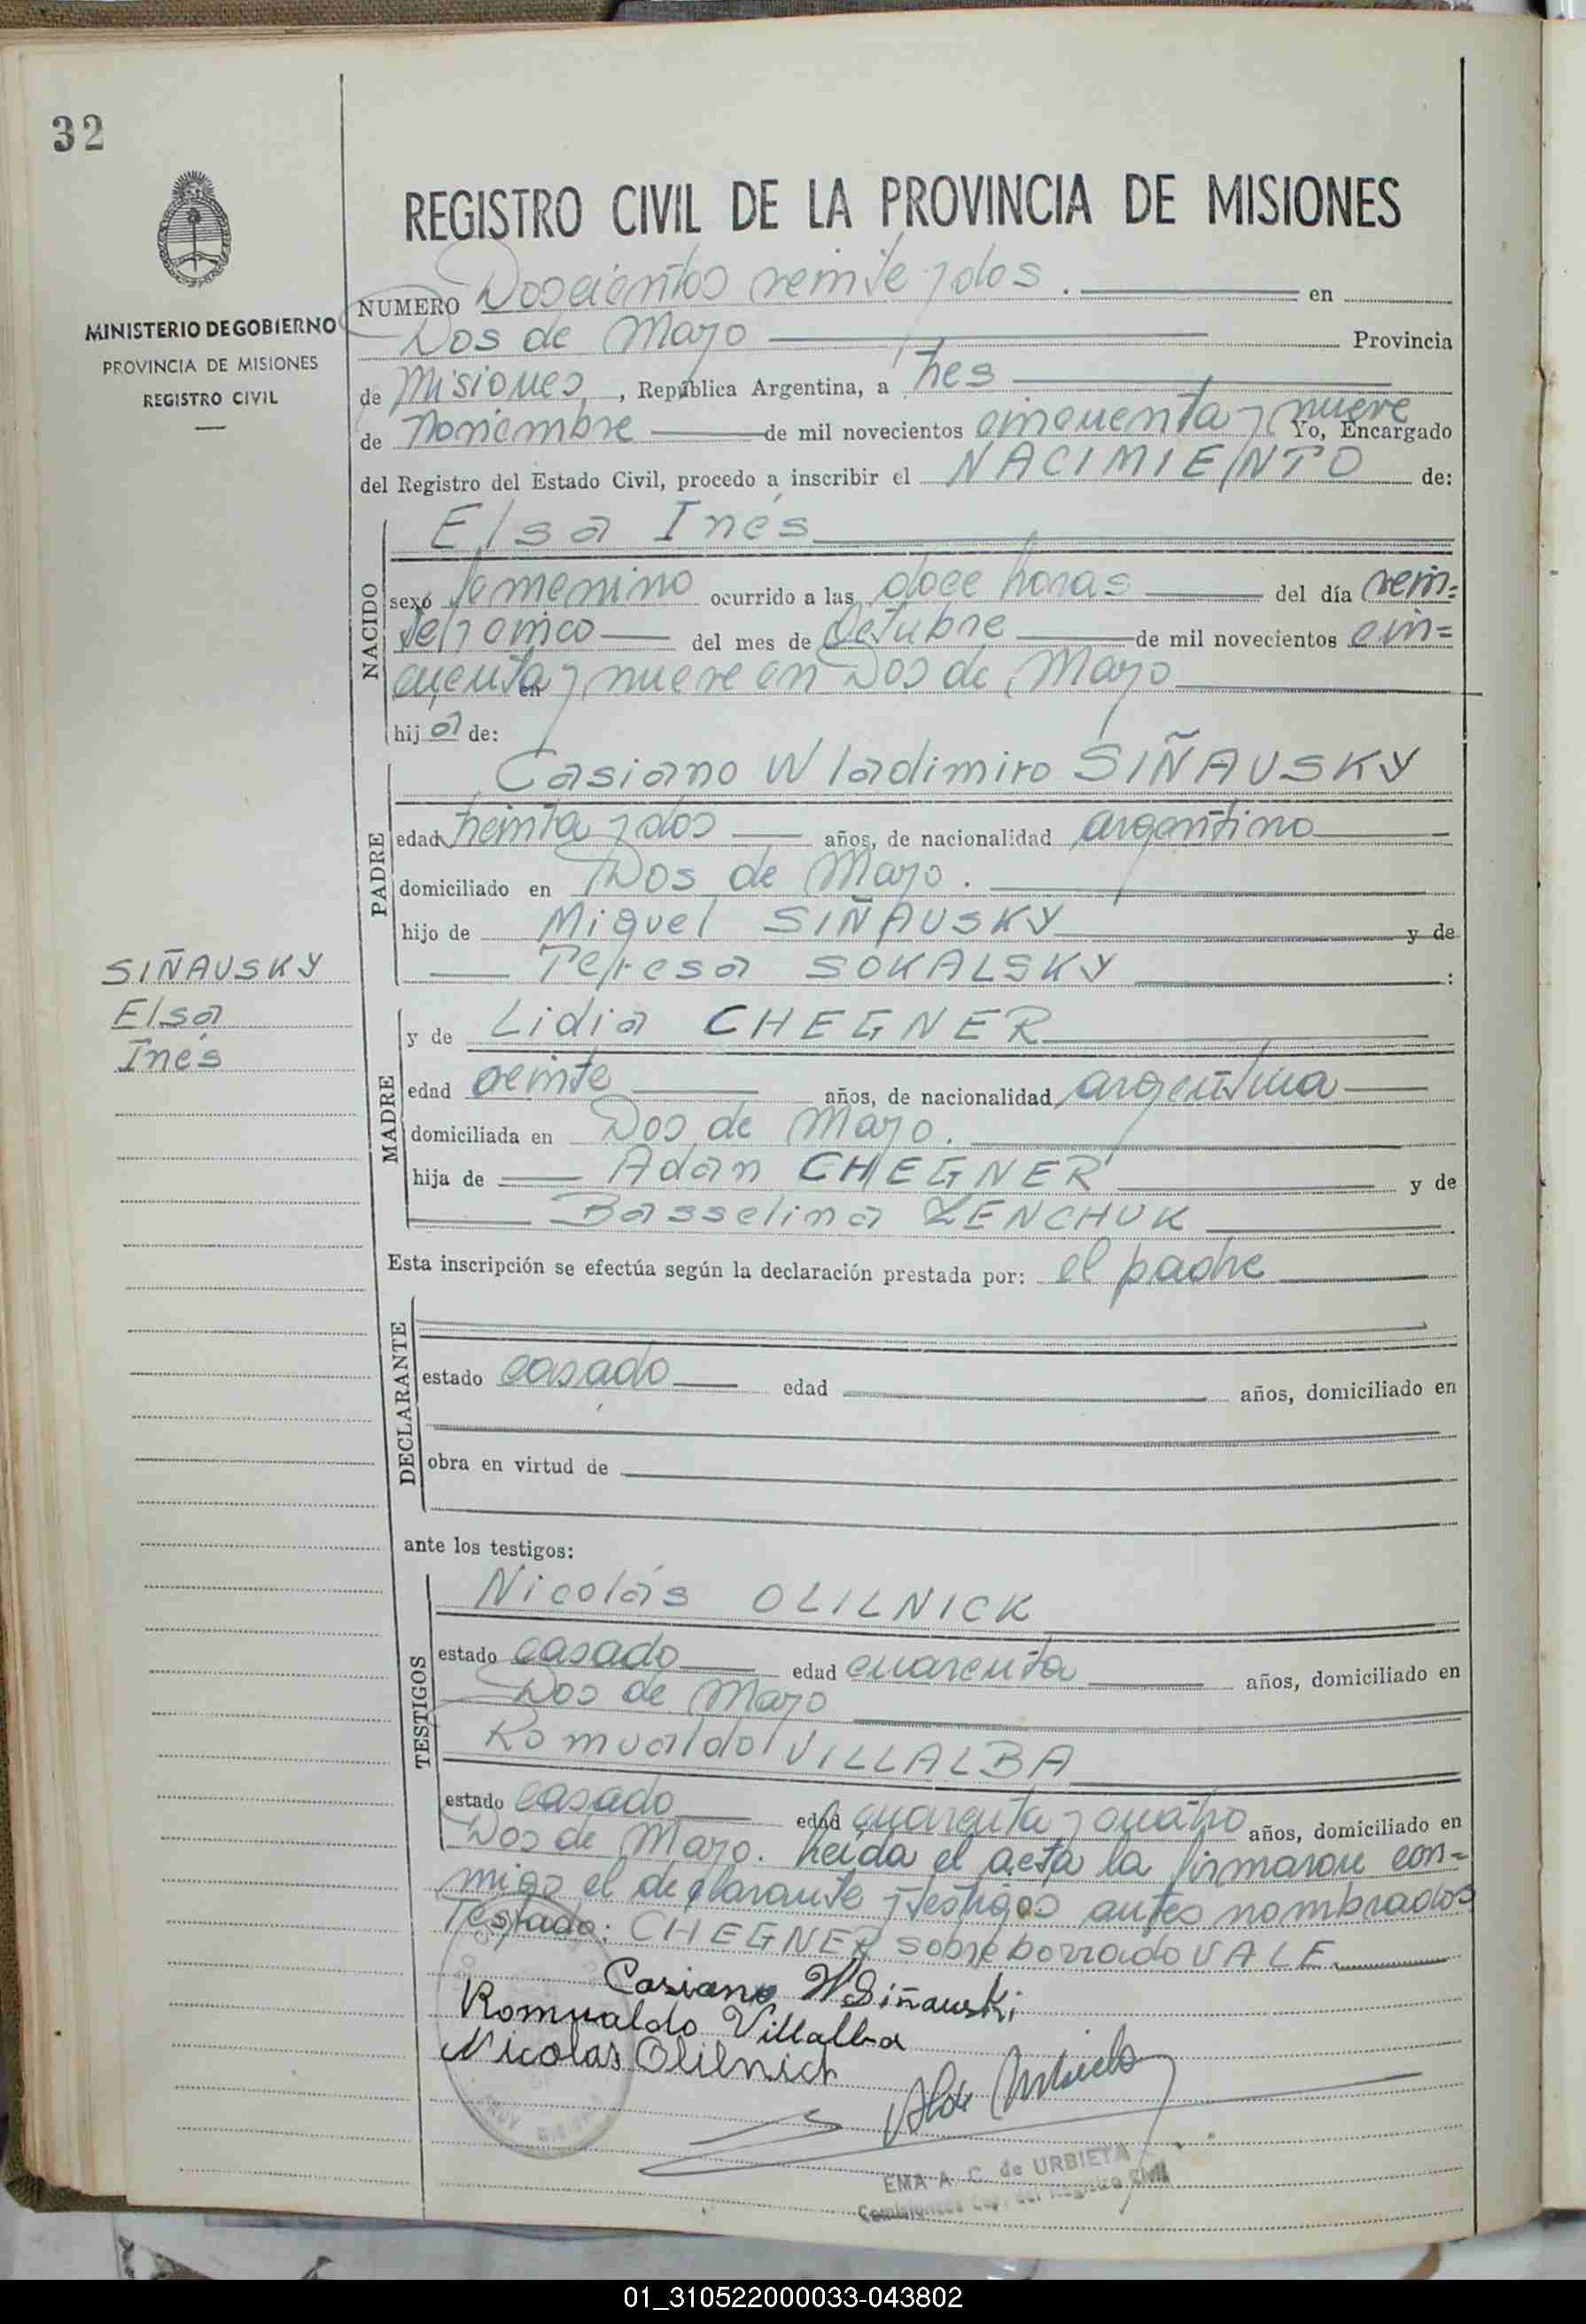 32
REGISTRO CIVIL DE LA PROVINCIA DE MISIONES
MINISTERIO DE GOBIERNO
PROVINCIA DE MISIONES
REGISTRO CIVIL
NUMERO Doscientos veinte y dos . en
Dos de Mayo Provincia
de Misiones , República Argentina, a tres
de Noviembre de mil novecientos cincuenta y nueve Yo, Encargado
del Registro del Estado Civil, procedo a inscribir el NACIMIENTO de:
NACIDO
Elsa Inés
sexo femenino ocurrido a las doce horas del día vein=
te y cinco del mes de Octubre de mil novecientos cin=
cuenta y nueve en Dos de Mayo
en
hij a de:
PADRE
Casiano Wladimiro SIÑAUSKY
edad treinta y dos años, de nacionalidad argentino
domiciliado en Dos de Mayo .
hijo de Miguel SIÑAUSKY y de
Teresa SOKALSKY :
SIÑAUSKY
Elsa
Inés
MADRE
y de Lidia CHEGNER
edad veinte años, de nacionalidad argentina
domiciliada en Dos de Mayo .
hija de Adán CHEGNER y de
Basselina ZENCHUK
Esta inscripción se efectúa según la declaración prestada por: el padre
DECLARANTE
estado casado edad años, domiciliado en
obra en virtud de
ante los testigos:
TESTIGOS
Nicolás OLILNICK
estado casado edad cuarenta años, domiciliado en
Dos de Mayo
Romualdo VILLALBA
estado casado edad cuarenta y cuatro años, domiciliado en
Dos de Mayo. Leída el acta la firmaron con=
migo el declarante y testigos antes nombrados
Testado: CHEGNER sobre borrado VALE
Casiano W Siñauski
Romualdo Villalba
Nicolas Olilnich
EMA A. C. de URBIETA
Registro Civil
01_310522000033-043802